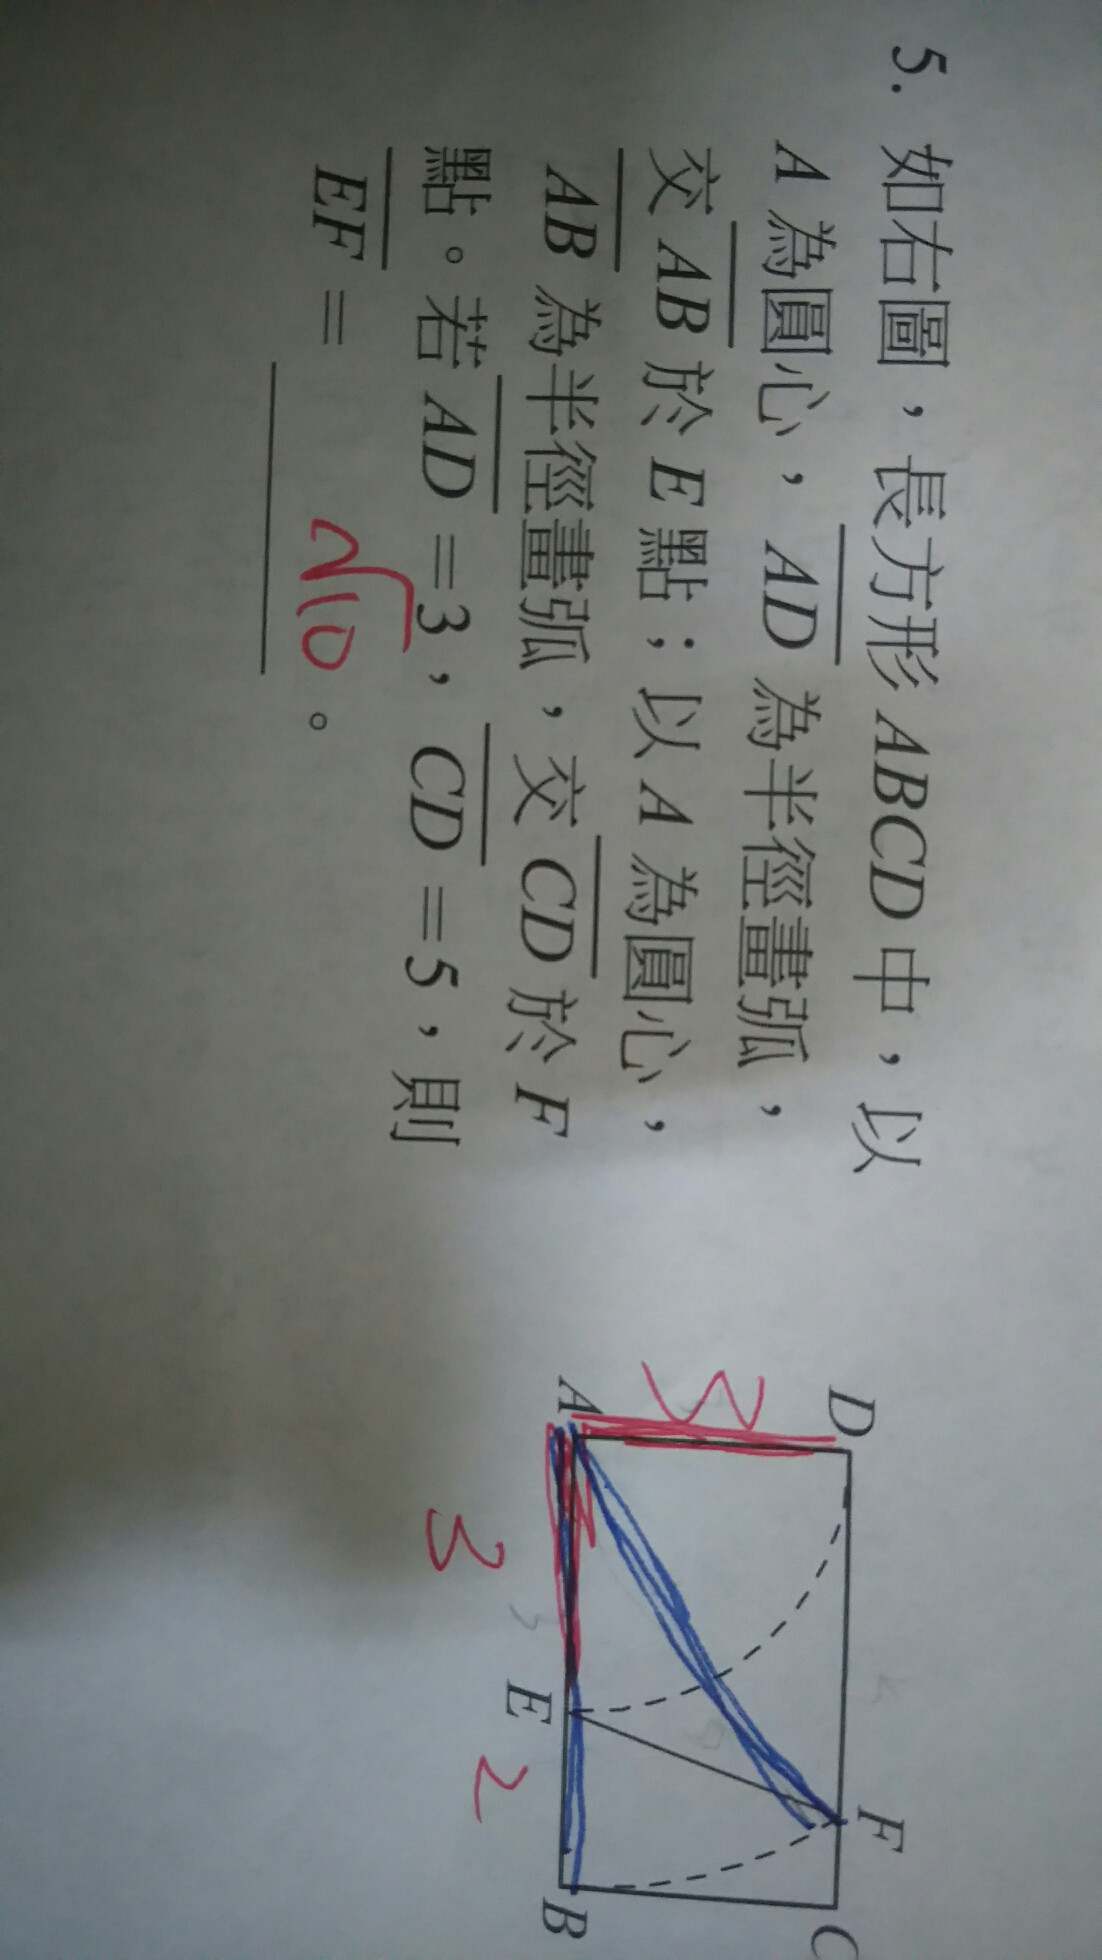 5. 如右圖，長方形 ABCD 中，以
A 為圓心，AD 為半徑畫弧，
交 AB 於 E 點；以 A 為圓心，
AB 為半徑畫弧，交 CD 於 F
點。若 AD =3，CD =5，則
EF = √10。
D
F
C
3
A
E
B
3
2